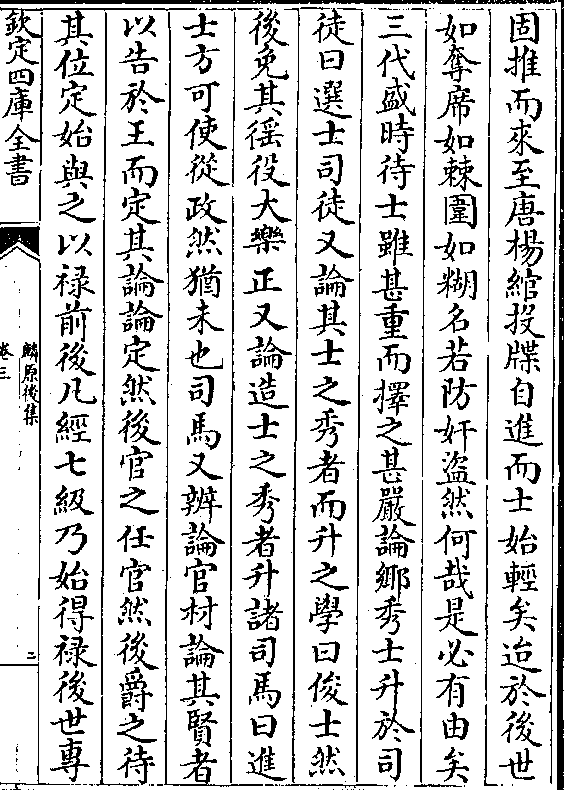 固推而來至唐楊綰投牒自進而士始輕矣迨於後世
如奪席如棘圍如糊名若防奸盜然何哉是必有由矣
三代盛時待士雖甚重而擇之甚嚴論鄉秀士升於司
徒曰選士司徒又論其士之秀者而升之學曰俊士然
後免其徭役大樂正又論造士之秀者升諸司馬曰進
士方可使從政然猶未也司馬又辨論官材論其賢者
以告於王而定其論論定然後官之任官然後爵之待
其位定始與之以祿前後凡經七級乃始得祿後世專
欽定四庫全書
麟原後集
卷三
二